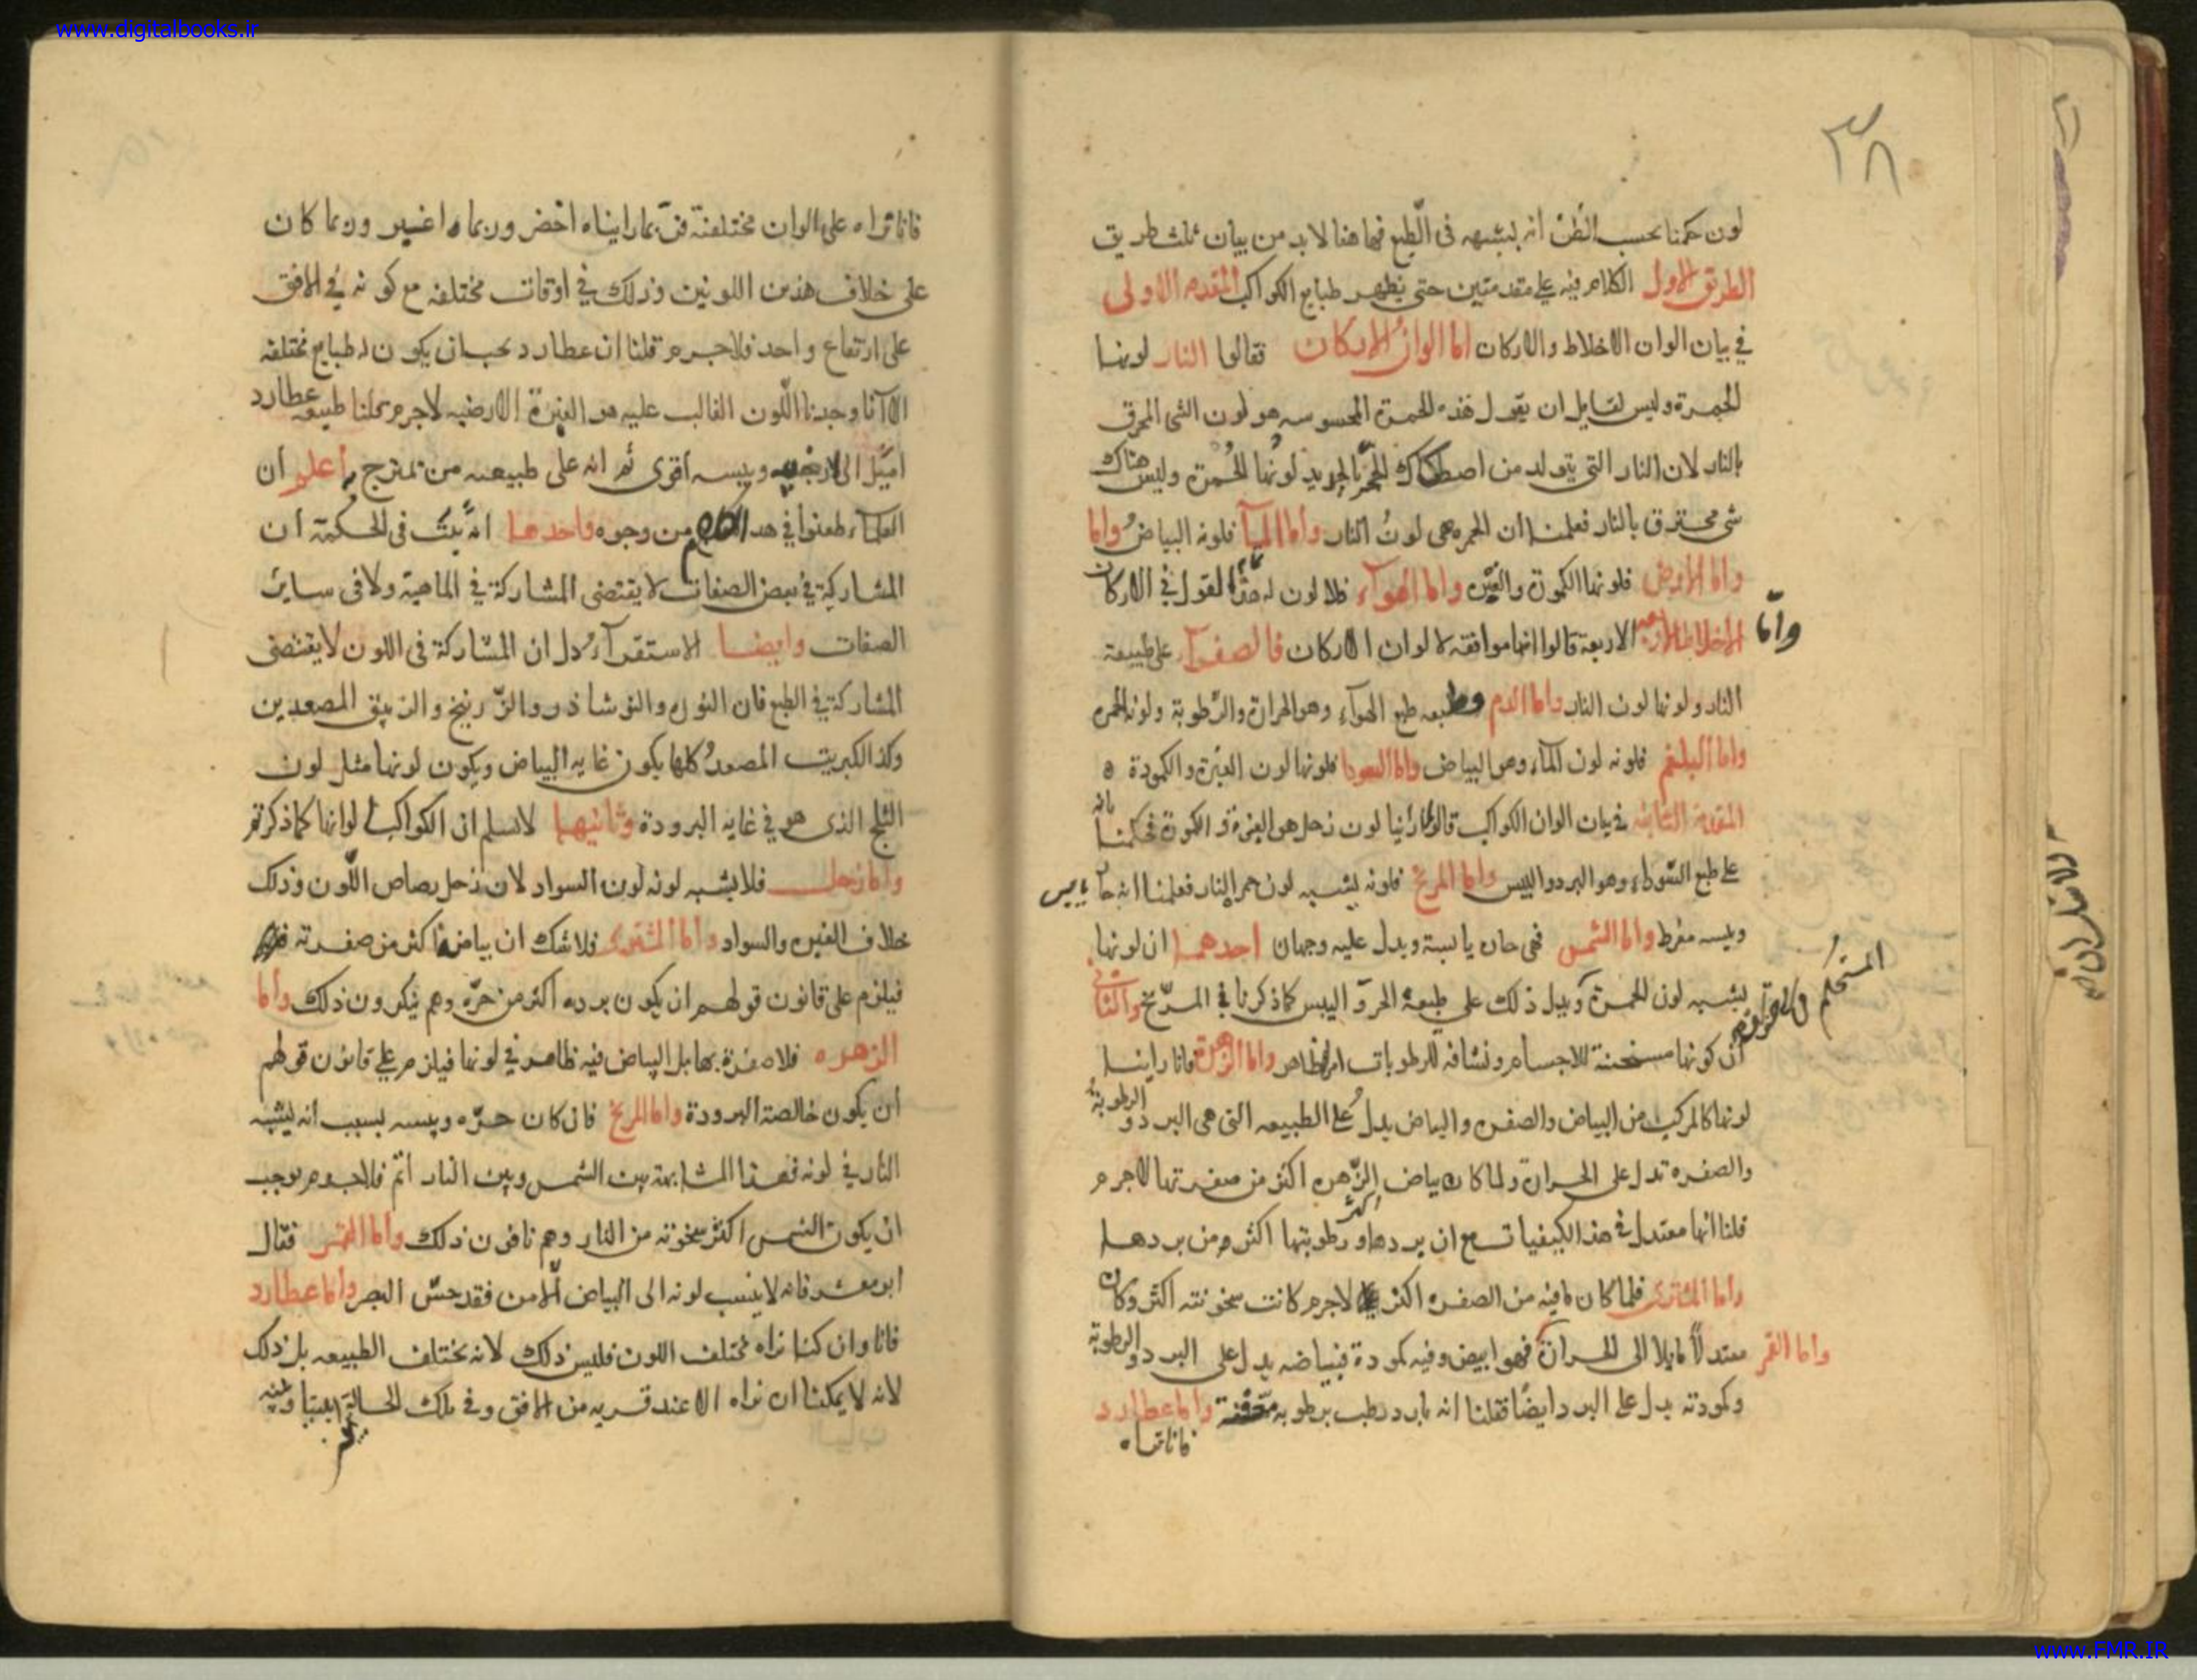 www.digitalbooks.ir
٣٨
لون حكمنا بحسب الظن انه يشبهه فى الطبع فهاهنا لابد من بيان ثلث طريق
الطريق الاول الكلام فيه على مقدمتين حتى يظهر طبايع الكواكب المقدمه الاولى
في بيان الوان الاخلاط والاركان اما الوان الاركان فقالوا النار لونها
الحمرة وليس لقايل ان يقول هذه الحمرة المحسوسه هو لون الشى المحرق
بالنار لان النار التي يتولد من اصطكاك الحجر بالحديد لونها الحمرة وليس هناك
شى محترق بالنار فعلمنا ان الحمره هى لون النار واما المآ فلونه البياض واما
واما الارض فلونها الكمودة والغبره واما الهوآء فلا لون له هذا تمام القول في الاركان
واما الاخلاط الاربعة قالوا انها موافقه لالوان الاركان فالصفرآء على طبيعة
النار ولونها لون النار واما الدم وطبعه طبع الهوآء وهو الحرارة والرطوبة ولونه الحمره
واما البلغم فلونه لون المآء وهو البياض واما السودا فلونها لون الغبرة والكمودة ه
المقدمة الثانيه في بيان الوان الكواكب قالوا راينا لون زحل هو الغبرة والكمودة فحكمنا بانه
على طبع السوداء وهو البرد واليبس واما المريخ فلونه يشبه لون حمر النار فعلمنا انه حار يابس
ويبسه مفرط واما الشمس فهى حاره يابسة ويدل عليه وجهان احدهما ان لونها
يشبه لون الحمرة ويدل ذلك على طبيعة الحر واليبس كما ذكرنا في المريخ والثانى
ان كونها مسخنة للاجسام ونشافه للرطوبات امر ظاهر واما الزهرة فانا راينا
لونها كالمركب من البياض والصفره والبياض يدل على الطبيعه التى هى البرد والرطوبة
والصفره تدل على الحرارة ولما كان بياض الزهره اكثر من صفرتها لاجرم
قلنا انها معتدل في هذه الكيفيات مع ان بردها ورطوبتها اكثر من بردها
واما المشترى فلما كان ما فيه من الصفره اكثر لاجرم كانت سخونته اكثر وكان
معتدلاً مايلا الى الحرارة واما القمر فهو ابيض وفيه كمودة فبياضه يدل على البرد والرطوبة
وكمودته يدل على البرد ايضا فقلنا انه بارد رطب برطوبه واما عطارد
فانا نراه
فانا نراه على الوان مختلفة فربما رايناه اخضر وربما اغبر وربما كان
على خلاف هذين اللونين وذلك في اوقات مختلفه مع كونه في الافق
على ارتفاع واحد فلاجرم قلنا ان عطارد يجب ان يكون له طبايع مختلفه
الا انا وجدنا اللون الغالب عليه هو الغبرة الارضيه لاجرم قلنا طبيعه عطارد
اميل الى الارضيه ويبسه اقوى ثم انه على طبيعه من تمتزج به اعلم ان
العلمآء طعنوا في هذا الكلام من وجوه فاحدها انه يثبت فى الحكمة ان
المشاركة في بعض الصفات لا يقتضى المشاركة في الماهية ولا فى ساير
الصفات وايضا الاستقرآء دل ان المشاركة فى اللون لا يقتضى
المشاركة في الطبع فان النوره والنوشاذر والزرنيخ والزيبق المصعدين
وكذا الكبريت المصعد كلها يكون غايه البياض ويكون لونها مثل لون
الثلج الذى هو في غايه البرودة وثانيها لا نسلم ان الكواكب الوانها كما ذكرتم
واما زحل فلا يشبه لونه لون السواد لان زحل رصاص اللون وذلك
خلاف الغبره والسواد واما المشترى فلا شك ان بياضه اكثر من صفرته
فيلزم على قانون قولهم ان يكون برده اكثر من حره وهم ينكرون ذلك واما
الزهره فلا صفرة بها بل البياض فيه ظاهر في لونها فيلزم على قانون قولهم
ان يكون خالصة البرودة واما المريخ فان كان حره ويبسه بسبب انه يشبه
النار في لونه فهذا المشابهة بين الشمس وبين النار اتم فلاجرم يوجب
ان يكون الشمس اكثر سخونه من النار وهم نافون ذلك واما القمر فقال
ابو معشر فانه لا ينسب لونه الى البياض الا من فقد حس البصر واما عطارد
فانا وان كنا نراه مختلف اللون فليس ذلك لانه يختلف الطبيعه بل ذلك
لانه لا يمكننا ان نراه الا عند قربه من الافق وفي تلك الحالة
www.FMR.IR